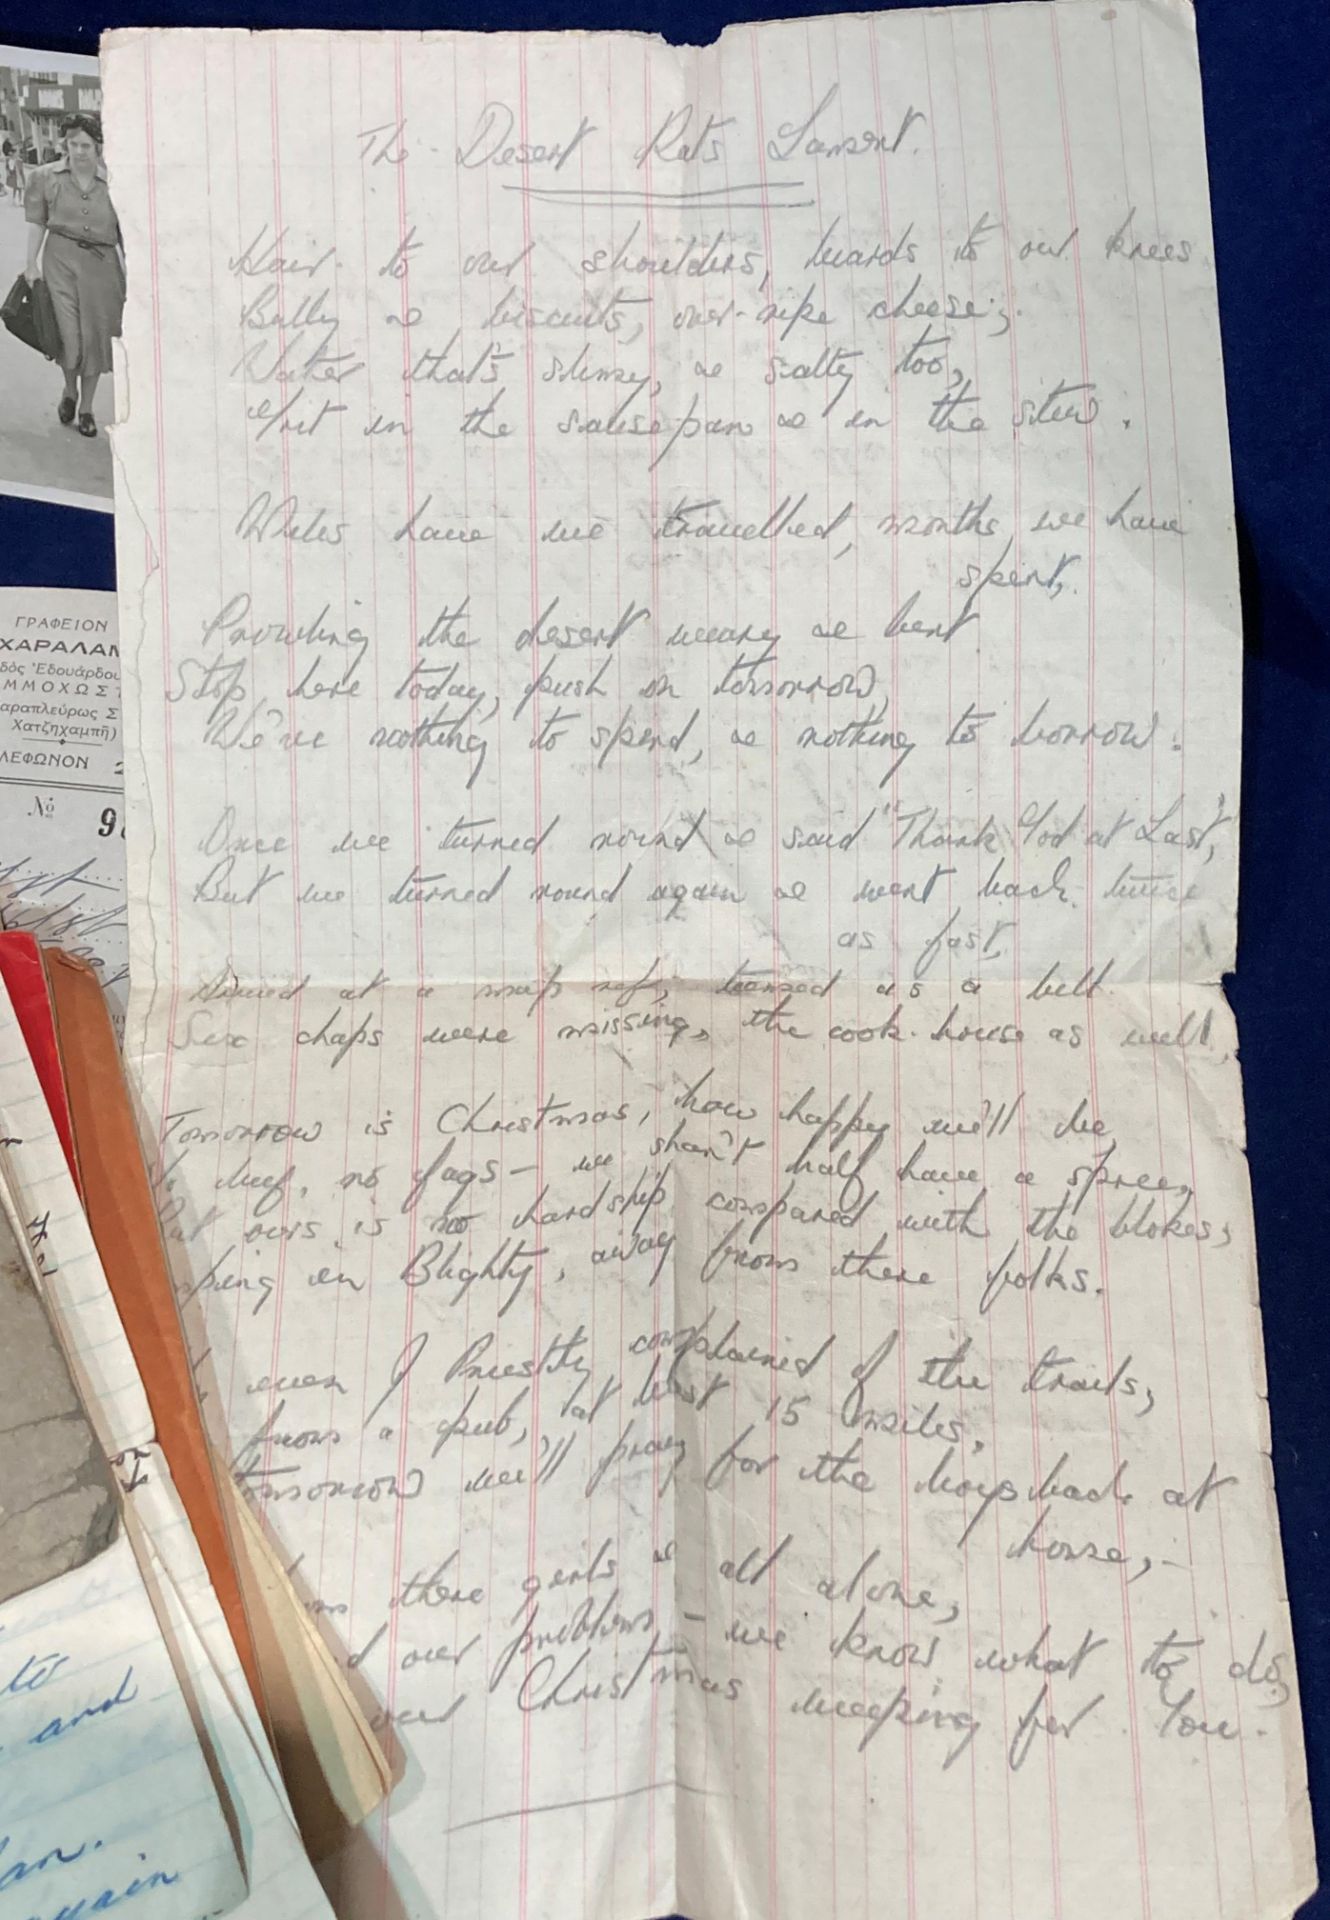 The Desert Rats Lament.
Hair to our shoulders, beards to our knees
Bully & biscuits, over-ripe cheese;
Water that's slimy, & salty too,
Grit in the sausepan & in the stew.
Miles have we travelled, months we have
spent,
Prowling the desert weary & bent
Stop here today, push on tomorrow,
We've nothing to spend, & nothing to borrow.
Once we turned round & said "Thank God at Last,"
But we turned round again & went back twice
as fast,
Arrived at a map ref; tensed as a bell
Six chaps were missing, the cook-house as well,
Tomorrow is Christmas, how happy we'll be,
beef, no fags — we shan't half have a spree,
But ours is no hardship compared with the blokes;
in Blighty, away from there folks.
even J Priestly complained of the trails,
from a pub, at least 15 miles,
tomorrow we'll pray for the boys back at
home,-
there girls & all alone,
our problems — we know what to do,
our Christmas weeping for You.
ΓΡΑΦΕΙΟΝ
ΧΑΡΑΛΑΜ
δὸς Ἐδουάρδου
ΜΜΟΧΩΣΤ
αραπλεύρως Σ
Χατζηχαμπῆ)
ΛΕΦΩΝΟΝ 2
№ 9
to
and
again